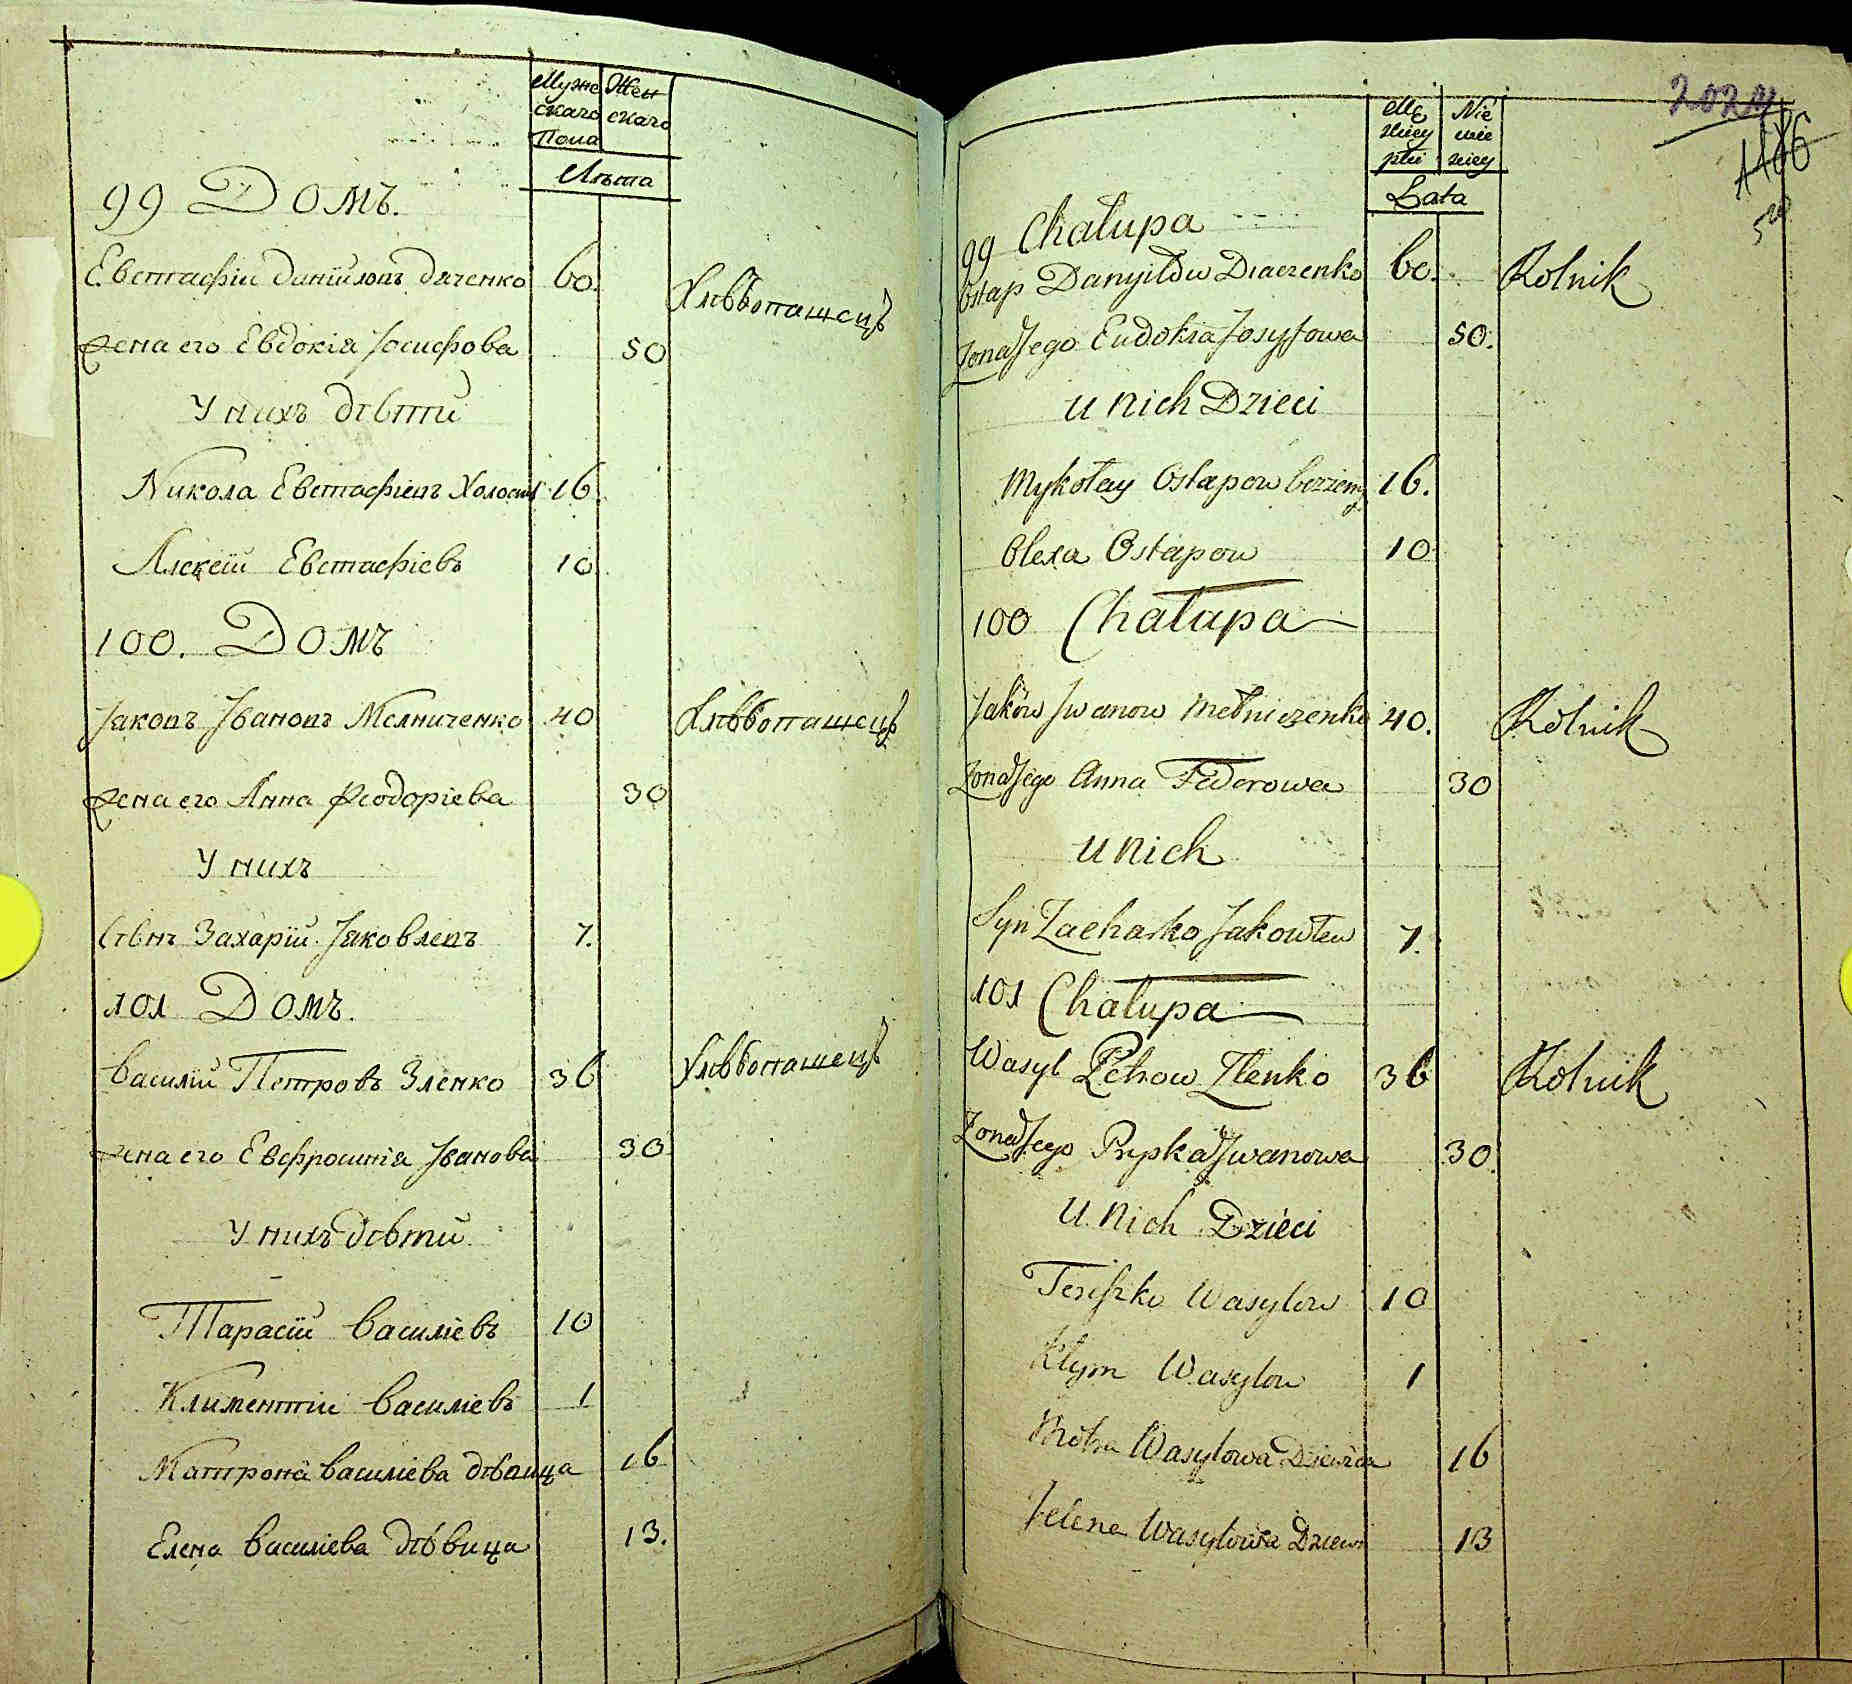 Муже
скаго
Пола
Жен
скаго
Лѣта
99 Домъ.
Евстафїи Данїиловъ Дяченко 60. Хлѣбопашецъ
Жена его Евдокїя Іосифова 50
У нихъ дѣти
Никола Евстафїевъ Холост 16
Алексїй Евстафїевъ 10
100. Домъ
Іаковъ Івановъ Мелниченко 40 Хлѣбопашецъ
Жена его Анна Феодорїева 30
У нихъ
Сынъ Захарїй Іаковлевъ 7.
101 Домъ.
Василїй Петровъ Зленко 36 Хлѣбопашецъ
Жена его Евфросинїя Іванова 30
У нихъ дѣти
Тарасїй Василїевъ 10
Климентїи Василїевъ 1
Матрона Василїева дѣвица 16
Елена Василїева дѣвица 13.
202
Męz
kiey
płci
Nie
wie
ściey
Lata
99 Chałupa
Ostap Danyiłow Diaczenko 60. Rolnik
Zona Jego Eudokia Josyfowa 50.
u nich Dzieci
Mykołay Ostapow bezżeny 16.
Olexa Ostapow 10
100 Chałupa
Jaków Jwanow Mełniczenko 40. Rolnik
Zona Jego Anna Fedorowa 30
u nich
Syn Zacharko Jakowlew 7.
101 Chałupa
Wasyl Petrow Zlenko 36 Rolnik
Zona Jego Pryska Jwanowa 30
u nich Dzieci
Wasylow 10
Kłym Wasylow 1
Motra Wasylowa Dziewka 16
Jelena Wasylowa Dziew 13